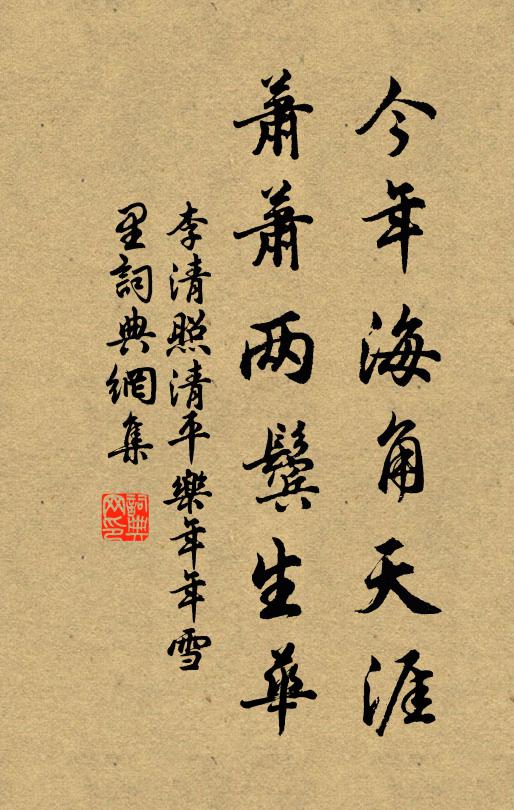 今年海角天涯
蕭蕭两鬓生華
李清照清平樂年年雪
里詞典網集
詞典网印